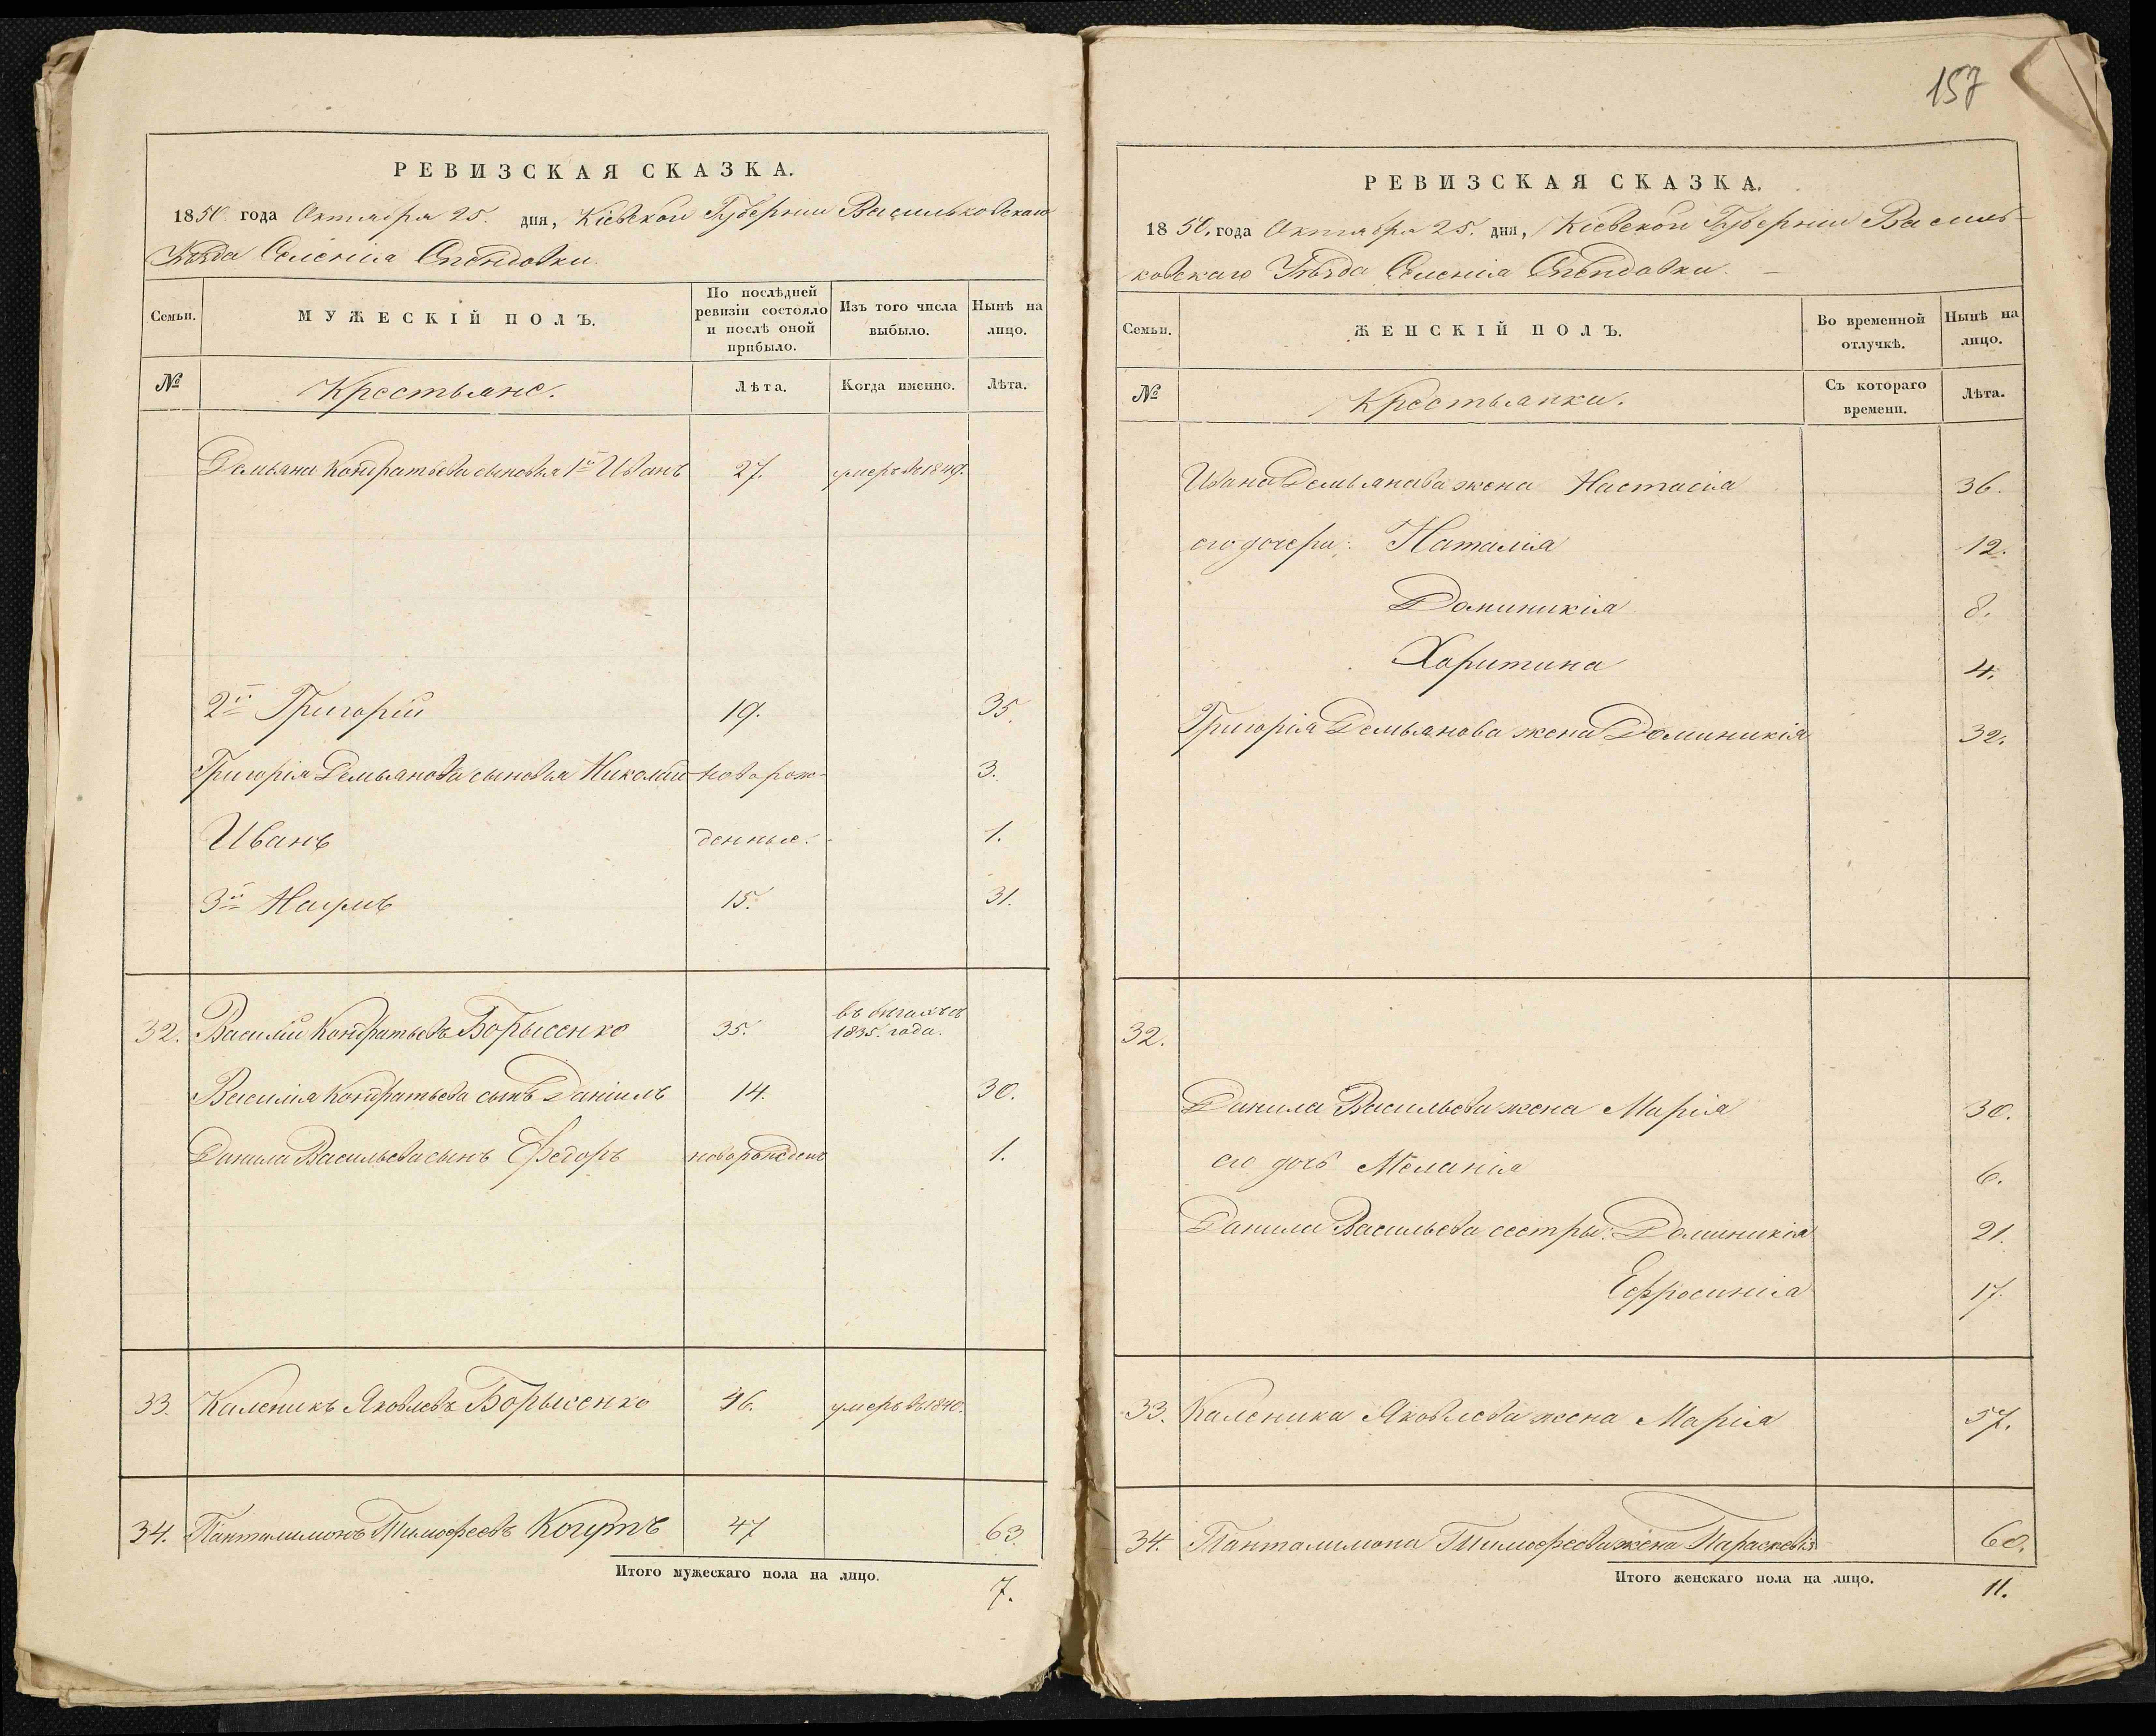 РЕВИЗСКАЯ СКАЗКА.
1850 года Октября 25. дня, Кіевской Губерніи Васильковскаго
Уѣзда Селенія Спендовки.
Семьи.
МУЖЕСКІЙ ПОЛЪ.
По послѣдней ревизіи состояло и послѣ оной прибыло.
Изъ того числа выбыло.
Нынѣ на лицо.
№ Крестьяне. Лѣта. Когда именно. Лѣта.
Демьяна Кондратьева сыновья 1й Иванъ 27. умеръ въ 1849.
2й Григорій 19. 35.
Григорія Демьянова сыновья Николай новорож- 3.
Иванъ денные. 1.
3й Наумъ 15. 31.
32. Василій Кондратьевъ Борысенко 35. въ бѣгахъ съ
1835. года.
Василія Кондратьева сынъ Даніилъ 14. 30.
Данила Васильева сынъ Федоръ новорожденъ 1.
33. Каленикъ Яковлевъ Борысенко 46. умеръ въ 1840.
34. Панталимонъ Тимофеевъ Когутъ 47 63.
Итого мужескаго пола на лицо. 7.
157
РЕВИЗСКАЯ СКАЗКА.
1850. года Октября 25. дня, Кіевской Губерніи Василь-
ковскаго Уѣзда Селенія Спендовки.
Семьи.
ЖЕНСКІЙ ПОЛЪ.
Во временной отлучкѣ.
Нынѣ на лицо.
№ Крестьянки. Съ котораго времени. Лѣта.
Ивана Демьянова жена Настасія 36.
его дочери: Наталія 12.
Доминикія 8.
Харитина 4.
Григорія Демьянова жена Доминикія 32.
32.
Данила Васильева жена Марія 30.
его дочь Меланія 6.
Данила Васильева сестры: Доминикія 21.
Ефросинія 17.
33. Каленика Яковлева жена Марія 57.
34. Панталимона Тимофеева жена Параскевія 60.
Итого женскаго пола на лицо. 11.